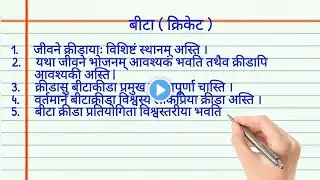 बीटा ( क्रिकेट )
1. जीवने क्रीडायाः विशिष्टं स्थानम् अस्ति ।
2. यथा जीवने भोजनम् आवश्यकं भवति तथैव क्रीडापि
आवश्यकी अस्ति।
3. क्रीडासु बीटाकीडा प्रमुख पूर्णा चास्ति ।
4. वर्तमाने बीटाक्रीडा विश्वस्य प्रिया क्रीडा अस्ति ।
5. बीटा क्रीडा प्रतियोगिता विश्वस्तरीया भवति